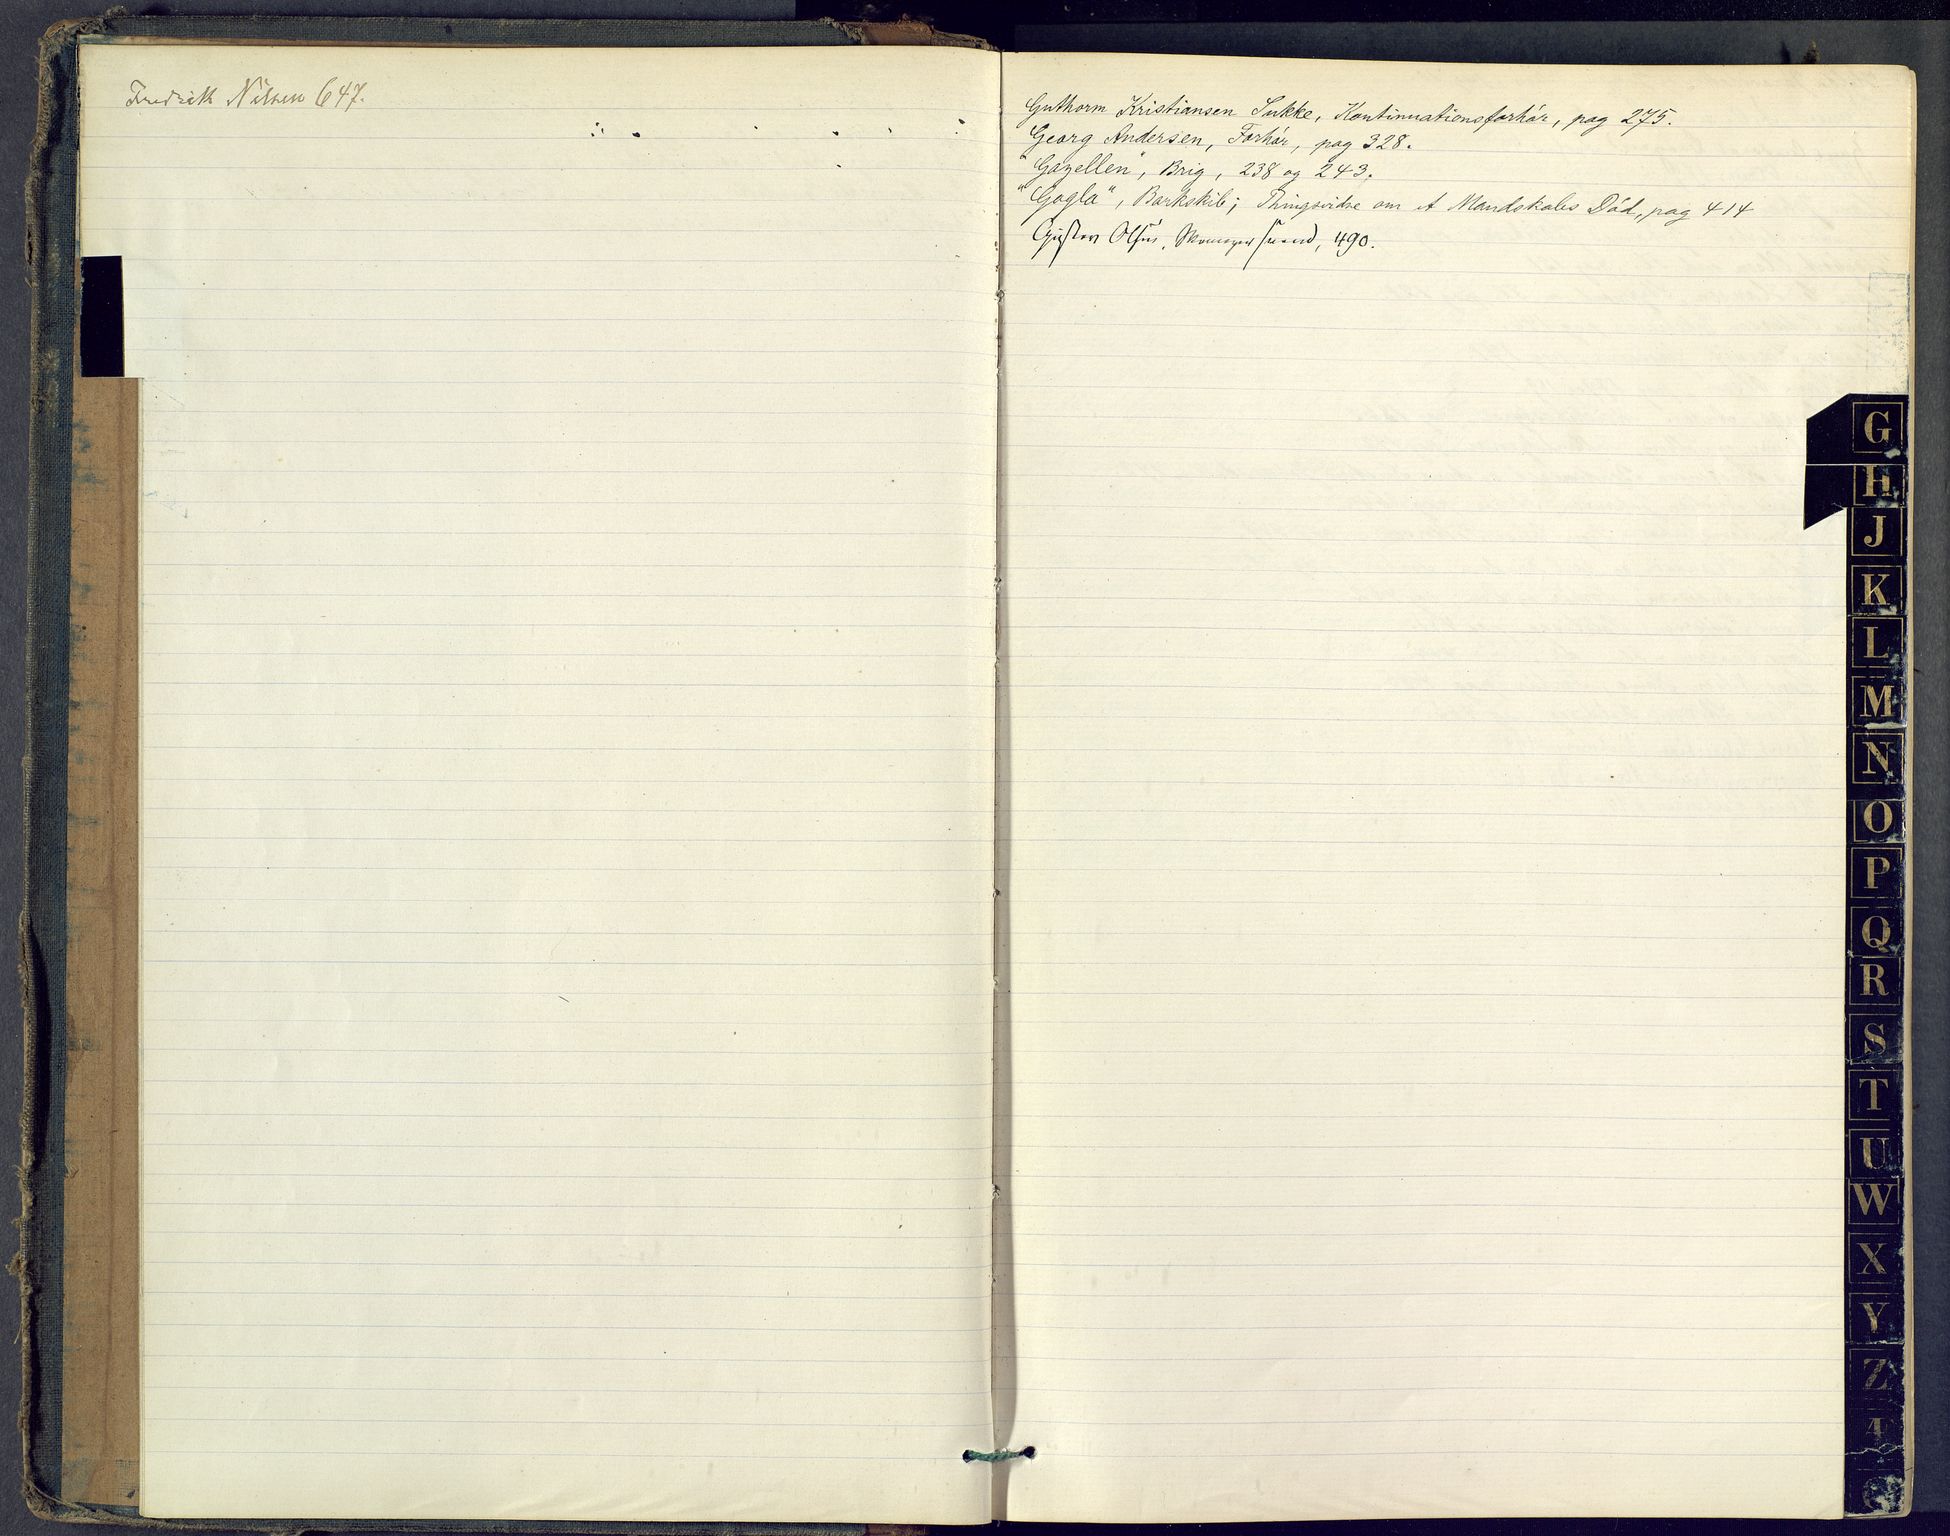 Fredrik Nilsen 647.
Guthorm Kristiansen Sukke, Kontinuationsforhör, pag 275.
Georg Andersen, Forhör, pag 328.
"Gazellen", Brig, 238 og 243.
"Gogla", Barkskib; Thingsvidne om et Mandskabs Död, pag 414
Gustav Olsen, 490.
G
H
J
K
L
M
N
O
P
Q
R
S
T
U
W
X
Y
Z